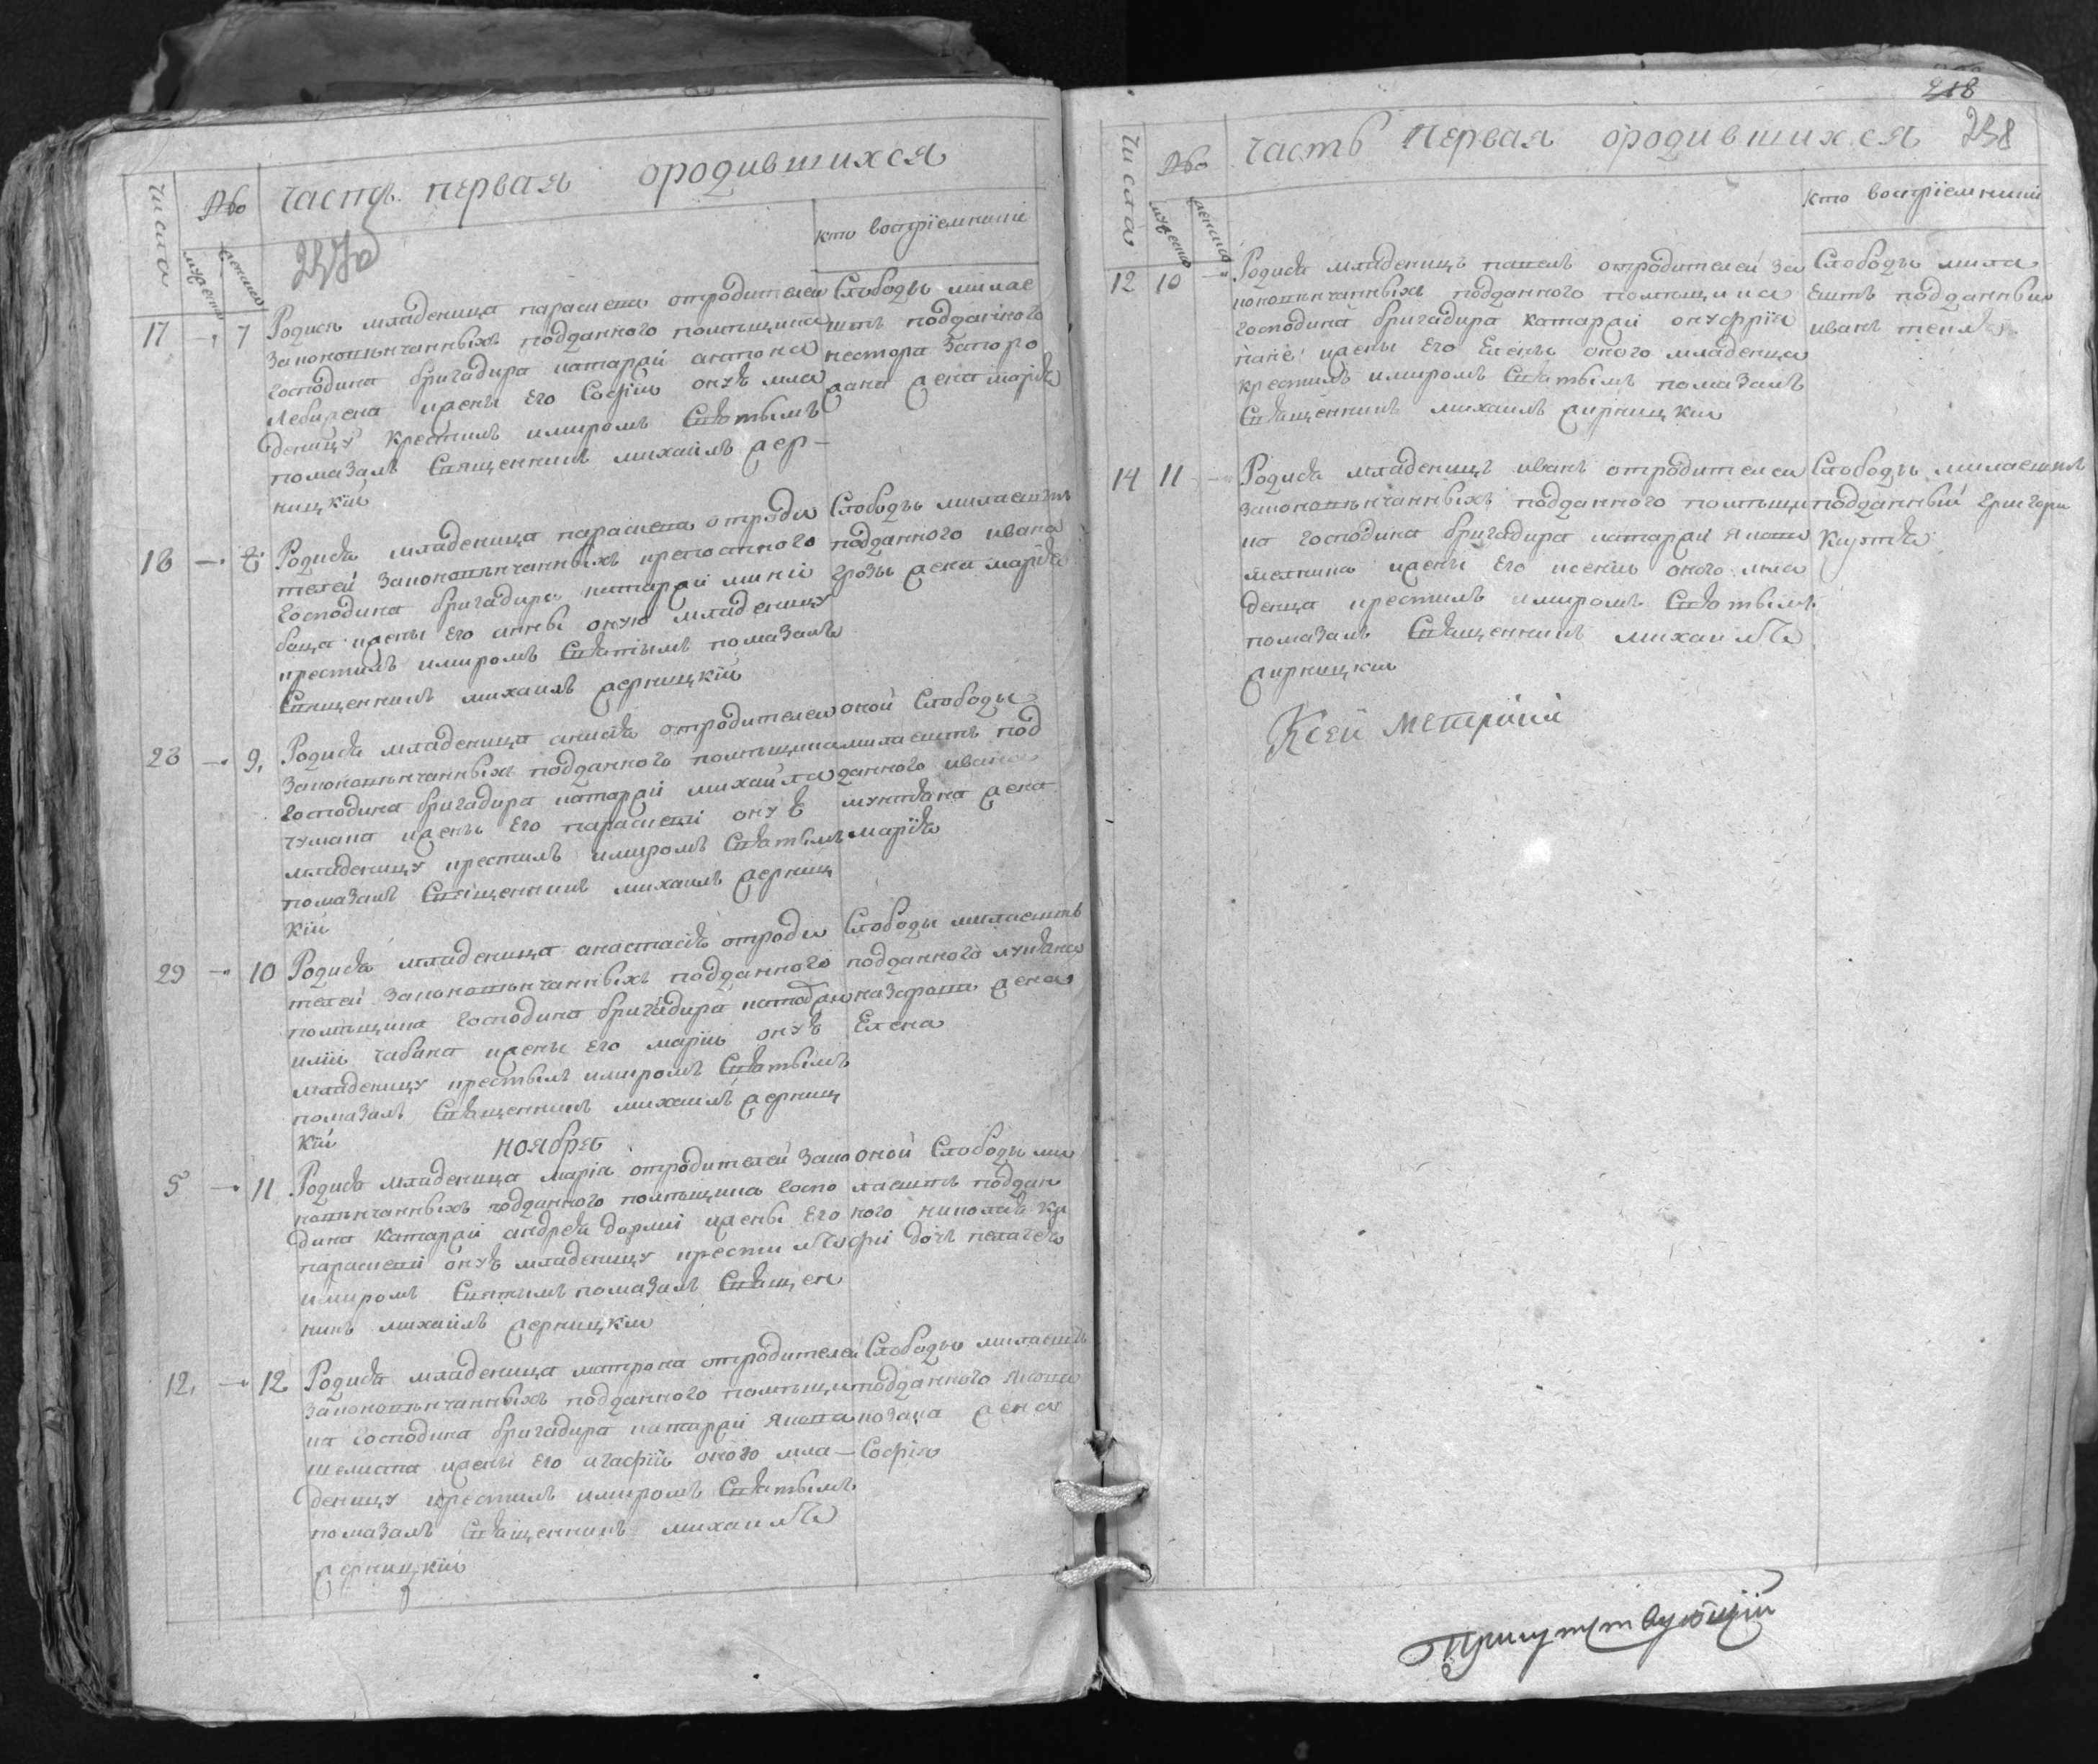 Числа
№
мужеска
женска
Часть первая о родившихся
237об
кто воспріемники
17 — 7
Родись младеница параскева от родителей
законовѣнчанныхъ подданного помѣщика
господина бригадира катаржи антона
жены его Софіи онуѣ мла
деницу крестилъ и миромъ Святымъ
помазалъ Священникъ михаилъ жер-
ницкій
Слободы милае
штъ подданного
нестора запоро
жана жена маріѣ
18 — 8
Родися младеница параскева от роди
телей законовѣнчанныхъ крепостного
господина бригадира катаржи
жены его анны оную младеницу
крестилъ и миромъ Святымъ помазалъ
Священникъ михаилъ жерницкій
Слободы милаештъ
подданного ивана
грозы жена маріѣ
23 — 9
Родися младеница от родителей
законовѣнчанныхъ подданного помѣщика
господина бригадира катаржи михайла
чумака жены его параскеви онуѣ
младеницу крестилъ и миромъ Святымъ
помазалъ Священникъ михаилъ жерниц
кій
оной Слободы
милаештъ под
данного ивана
мунтѣана жена
маріѣ
29 — 10
Родися младеница анастасіѣ от роди
телей законовѣнчанныхъ подданного
помѣщика господина бригадира катаржи
иліи чабана жены его маріи онуѣ
младеницу крестылъ и миромъ Святымъ
помазалъ Священникъ михаилъ жерниц
кій
Слободы милаештъ
подданного лукѣана
жена
Елена
ноября
5 — 11
Родися младеница маріа от родителей зако
новѣнчанныхъ подданного помѣщика госпо
дина катаржи андрея жены его
параскеви онуѣ младеницу крестилъ
и миромъ Святымъ помазалъ Священ
никъ михаилъ жерницкій
оной Слободы ми
лаештъ поддан
ного николая
дочь пелагеѣ
12 — 12
Родися младеница матрона от родителей
законовѣнчанныхъ подданного помѣщи
ка господина бригадира катаржи якова
жены его агафіи оного мла-
деницу крестилъ и миромъ Святымъ
помазалъ Священникъ михаилъ
жерницкій
Слободы милаештъ
подданного якова
козака жена
Софія
218
238
Числа
№
мужеска
женска
Часть первая о родившихся
кто воспріемники
12 10 —
Родися младеницъ павелъ от родителей за
коновѣнчанныхъ подданного помѣщика
господина бригадира катаржи онуфрія
жены его Елены оного младенца
крестилъ и миромъ Святымъ помазалъ
Священникъ михаилъ жирницкій
Слободы мила
ештъ подданный
иванъ
14 11 —
Родися младеницъ иванъ от родителей
законовѣнчанныхъ подданного помѣщи
ка господина бригадира катаржи якова
мелника жены его ксеніи оного мла
денца крестилъ и миромъ Святымъ
помазалъ Священникъ михаилъ
жирницкій
Слободы милаештъ
подданный григори
К сей метрики
Присутствующій